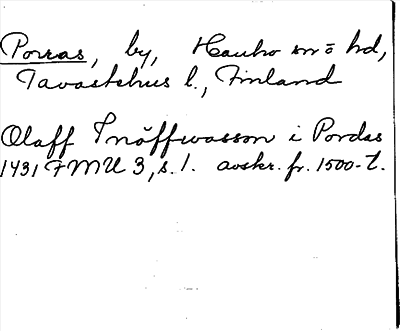 Porras, by, Hauho sn o hd,
Tavastehus l., Finland
Olaff Snöffwasson i Pordas
1431 FMU 3, s. 1. avskr. fr. 1500-t.